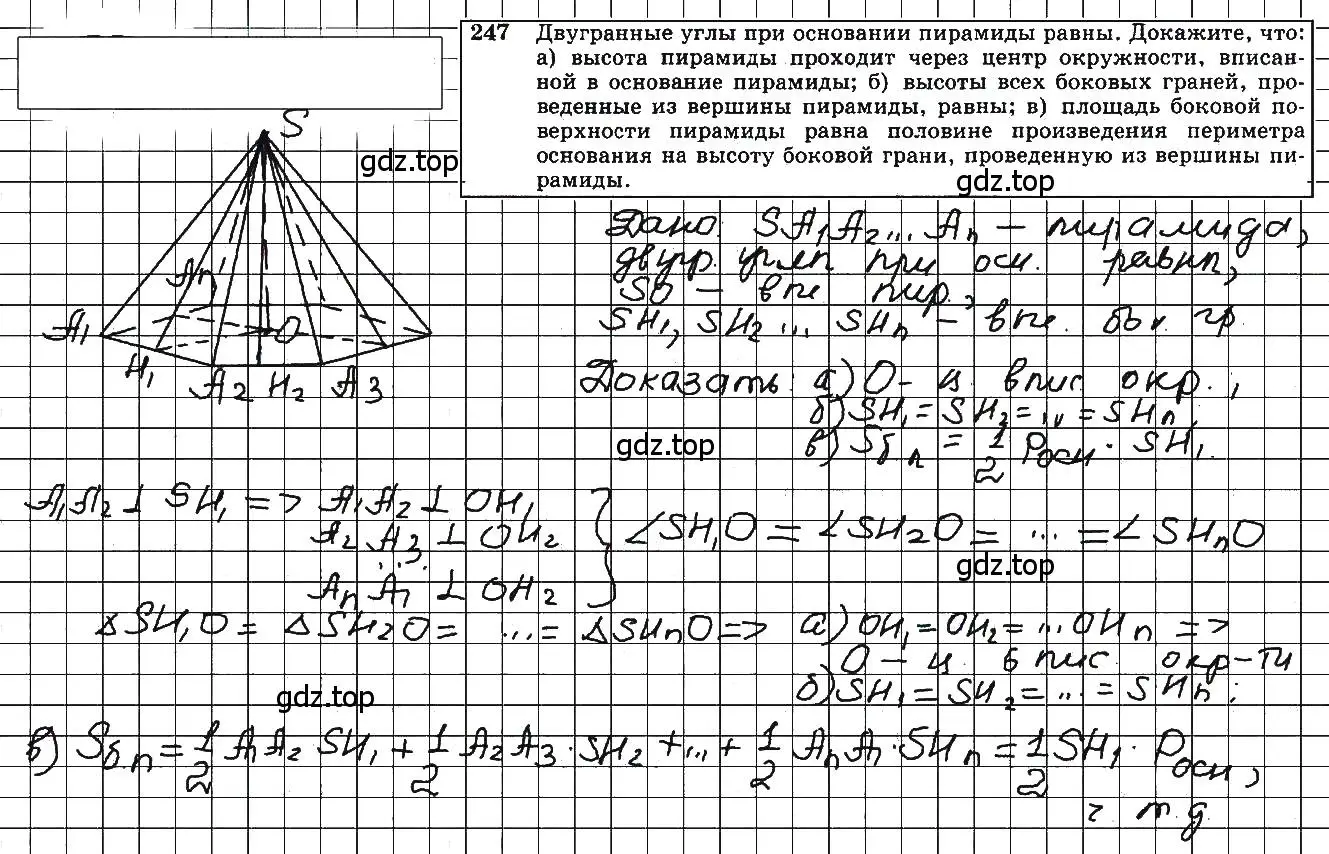 247 Двугранные углы при основании пирамиды равны. Докажите, что:
а) высота пирамиды проходит через центр окружности, вписан-
ной в основание пирамиды; б) высоты всех боковых граней, про-
веденные из вершины пирамиды, равны; в) площадь боковой по-
верхности пирамиды равна половине произведения периметра
основания на высоту боковой грани, проведенную из вершины пи-
рамиды.
gdz.top
gdz.top
S
An
A1
O
H1
A2 H2 A3
Дано: SA1A2...An – пирамида,
двугр. углы при осн. равны,
SO – выс пир.,
SH1, SH2 ... SHn – выс. бок. гр
Доказать: а) O – ц впис окр.,
б) SH1 = SH2 = ... = SHn;
в) Sб.п = 1/2 Pосн · SH1.
gdz.top
A1A2 ⊥ SH1 => A1A2 ⊥ OH1
A2A3 ⊥ OH2
...
AnA1 ⊥ OH2
} ∠SH1O = ∠SH2O = ... = ∠SHnO
gdz.top
△SH1O = △SH2O = ... = △SHnO => а) OH1 = OH2 = ...OHn =>
O – ц впис окр-ти
gdz.top
б) SH1 = SH2 = ... = SHn;
в) Sб.п = 1/2 A1A2 · SH1 + 1/2 A2A3 · SH2 + ... + 1/2 AnA1 · SHn = 1/2 SH1 · Pосн,
ч т.д